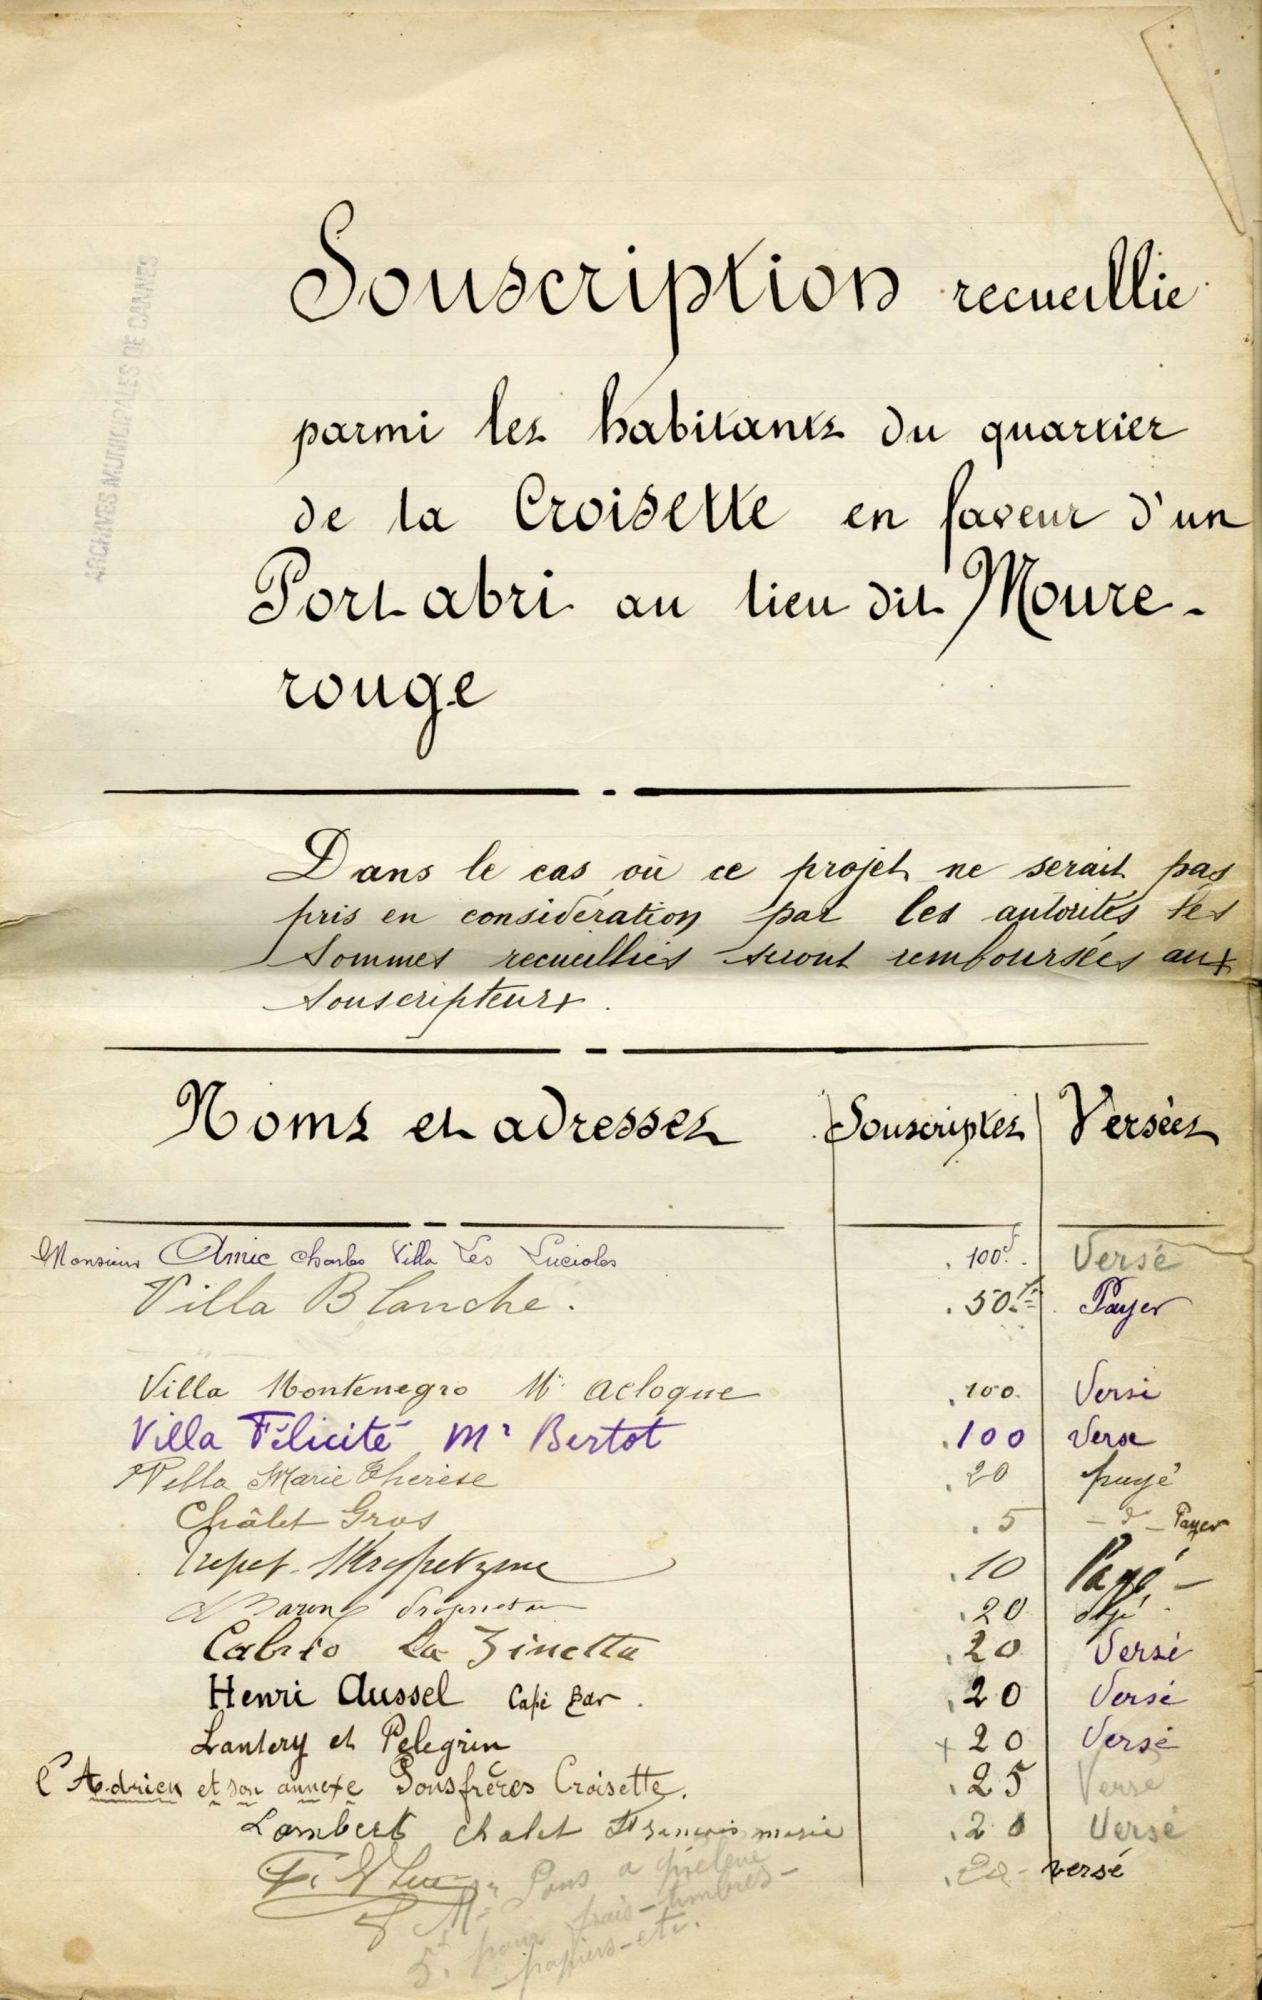 ARCHIVES MUNICIPALES DE CANNES
Souscription recueillie
parmi les habitants du quartier
de la Croisette en faveur d'un
Port abri au lieu dit Moure-
rouge
Dans le cas où ce projet ne serait pas
pris en considération par les autorités les
sommes recueillies seront remboursées aux
souscripteurs.
Noms et adresses Souscriptes Versées
Monsieur Amic Charles Villa Les Lucioles 100f. Versé
Villa Blanche. 50 Payer
Villa Montenegro Mr Acloque 100 Versé
Villa Félicité Mr Bertot 100 Verse
Villa Marie Thérèse 20 payé
Châlet Gros 5 Payer
10 Payé
Baron 20
Cabrio La Zinetta 20 Versé
Henri Aussel Café Bar. 20 Versé
Lantery et Pelegrin + 20 Versé
l'Adrien et son annexe Pons frères Croisette. 25 Versé
Lambert chalet François marie 20 Versé
20 versé
Mr Pons a prélevé
5f. pour frais-timbres-
-papiers-etc.